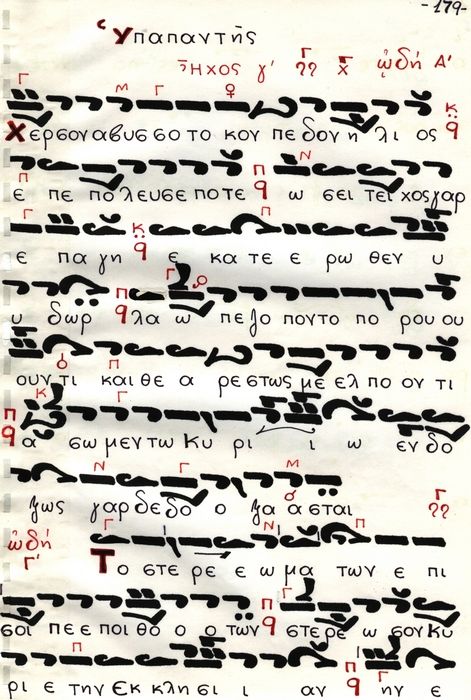 -179-
Ὑπαπαντῆς
Ἦχος γ' ᾠδή Α'
Χερσοναβυσσοτο κον πεδονη λι ος
ε πε πολευσεποτε ω σει τει χοςγαρ
ε παγη ε κα τε ε ρω θεν υ
υ δωρ λα ω πελο ποντοπο ρου ου
ουν τι και θε α ρε στως με ελ πο ον τι
α σω μεν τω Κυ ρι ι ω εν δο
ξως γαρ δε δο ο ξα α σται
ᾠδή Γ'
Το στε ρε ε ω μα των ε πι
σοι πε ε ποι θο ο ο των στε ρε ω σον Κυ
ρι ε την Εκ κλη σι ι αν ην ε